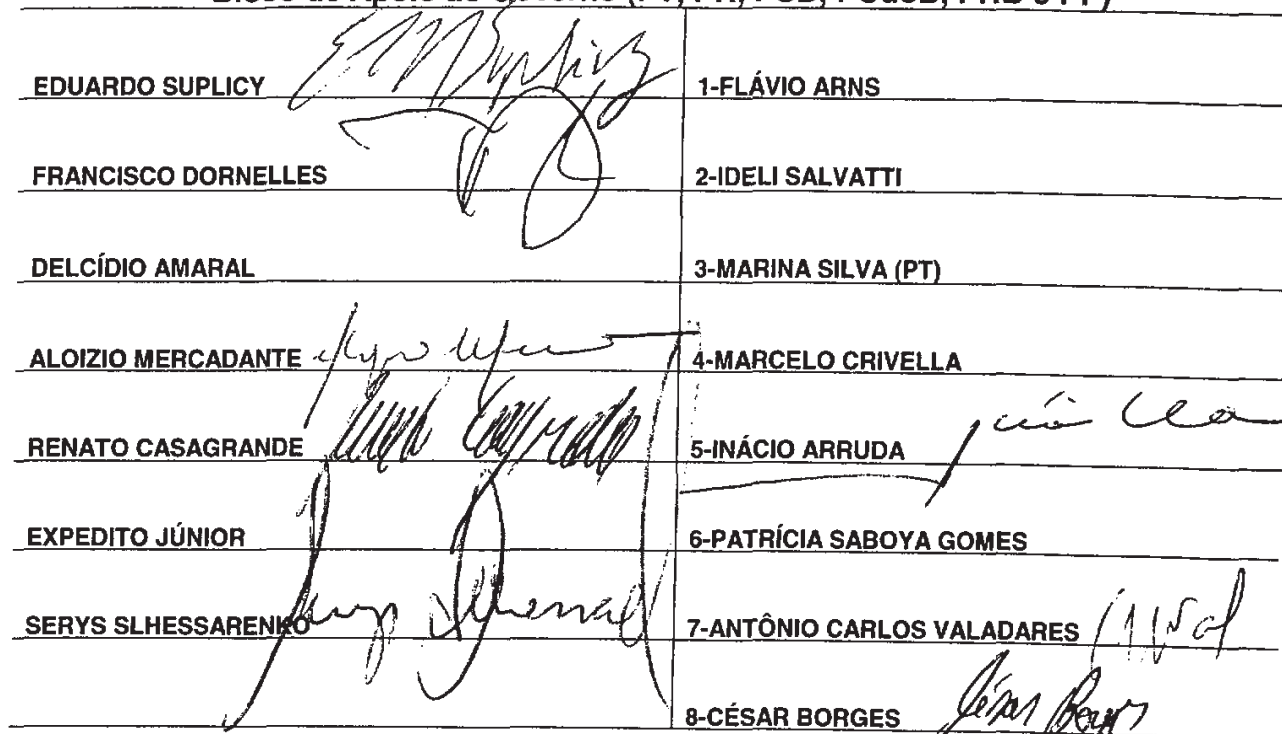 EDUARDO SUPLICY
1-FLÁVIO ARNS
FRANCISCO DORNELLES
2-IDELI SALVATTI
DELCÍDIO AMARAL
3-MARINA SILVA (PT)
ALOIZIO MERCADANTE
4-MARCELO CRIVELLA
RENATO CASAGRANDE
5-INÁCIO ARRUDA
EXPEDITO JÚNIOR
6-PATRÍCIA SABOYA GOMES
SERYS SLHESSARENKO
7-ANTÔNIO CARLOS VALADARES
8-CÉSAR BORGES César Borges